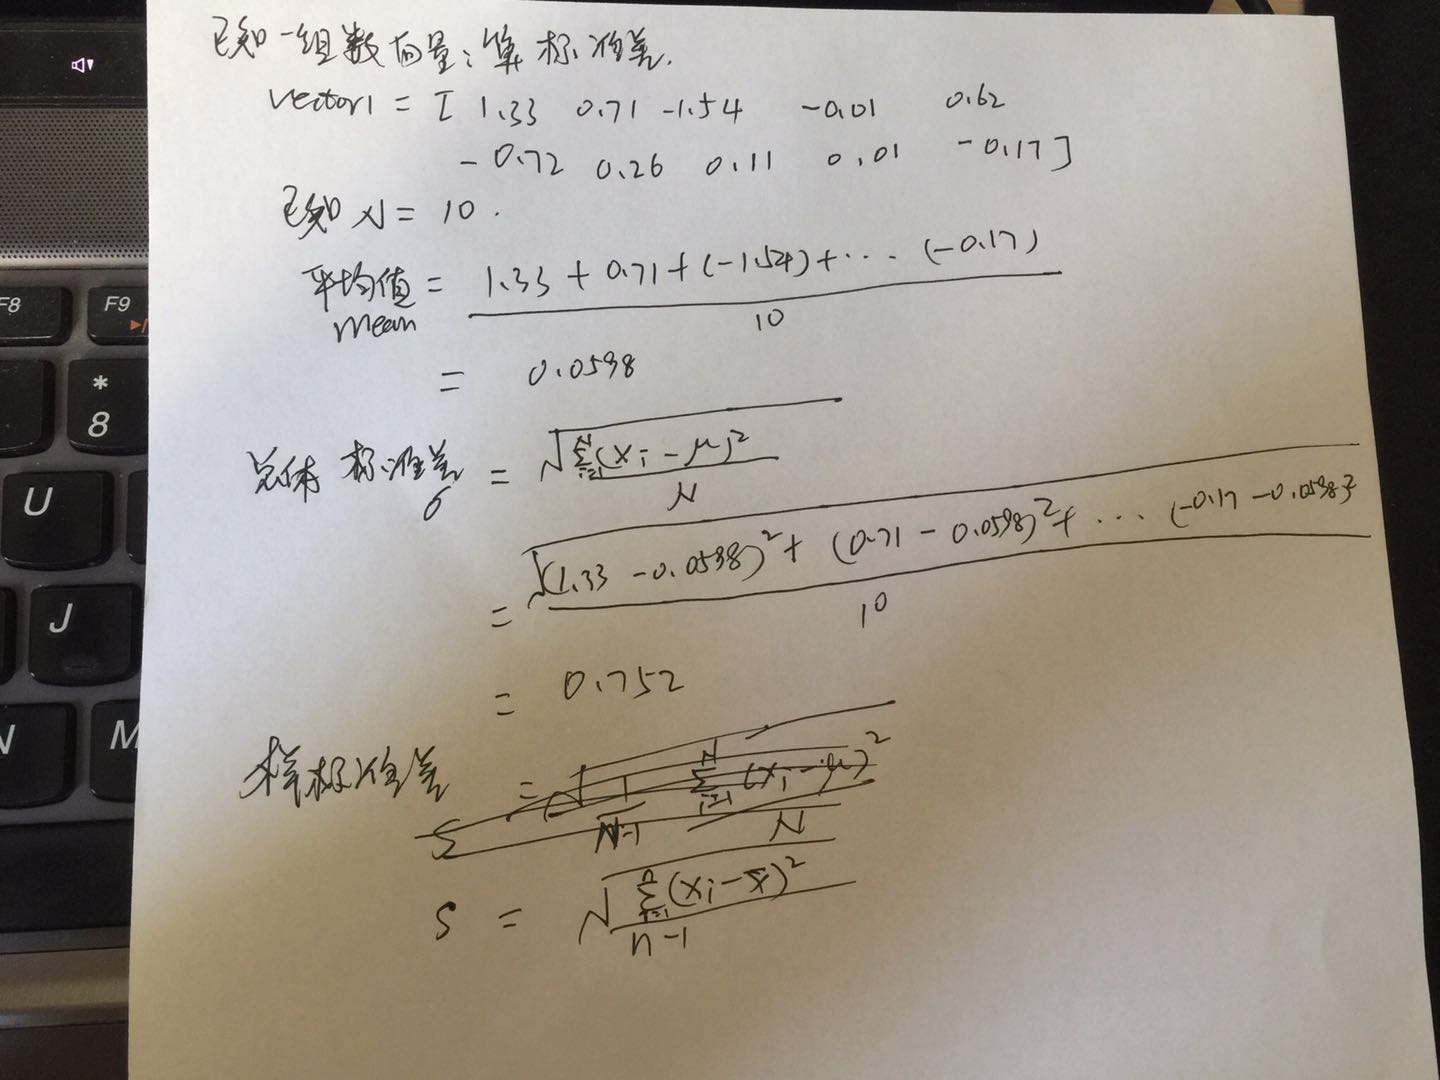 已知一组数向量:算标准差.
vector1 = [ 1.33 0.71 -1.54 -0.01 0.62
-0.72 0.26 0.11 0.01 -0.17 ]
已知 N = 10 .
平均值 = 1.33 + 0.71 + (-1.54) + ... (-0.17)
mean
10
= 0.0598
总体标准差 σ = √ Σ i=1 N (xi - μ)²
N
= √ (1.33 - 0.0598)² + (0.71 - 0.0598)² + ... (-0.17 - 0.0598)²
10
= 0.752
样标准差 = √ 1 N Σ i=1 (xi - μ)²
S N-1 N
S = √ n Σ i=1 (xi - x̄)²
n-1
F8
F9
*
8
U
J
N
M